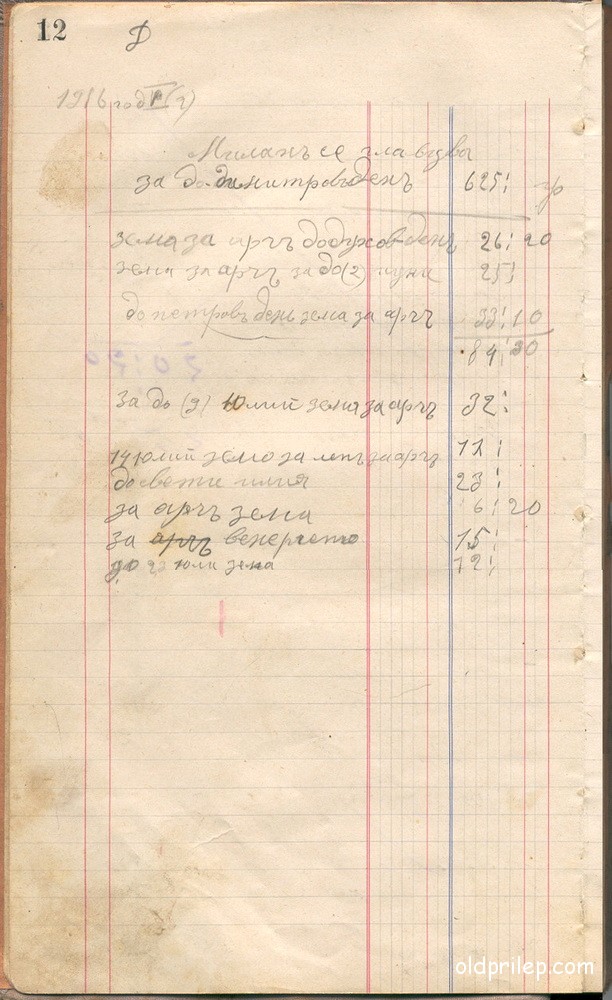 12 Д
1916 год
Миланъ се главува
за до димитровъденъ 625 гр
зема за арчъ додуховъденъ 26 20
зема за арчъ за до (2) юуни 25
до петровъ денъ зема за арчъ 33 10
84 30
за до (9) юлий зема за арчъ 32
14 юлий земо за за арчъ 11
до свети илия 23
за арчъ зема 6 20
за арчъ 15
до юли зема 12
oldprilep.com